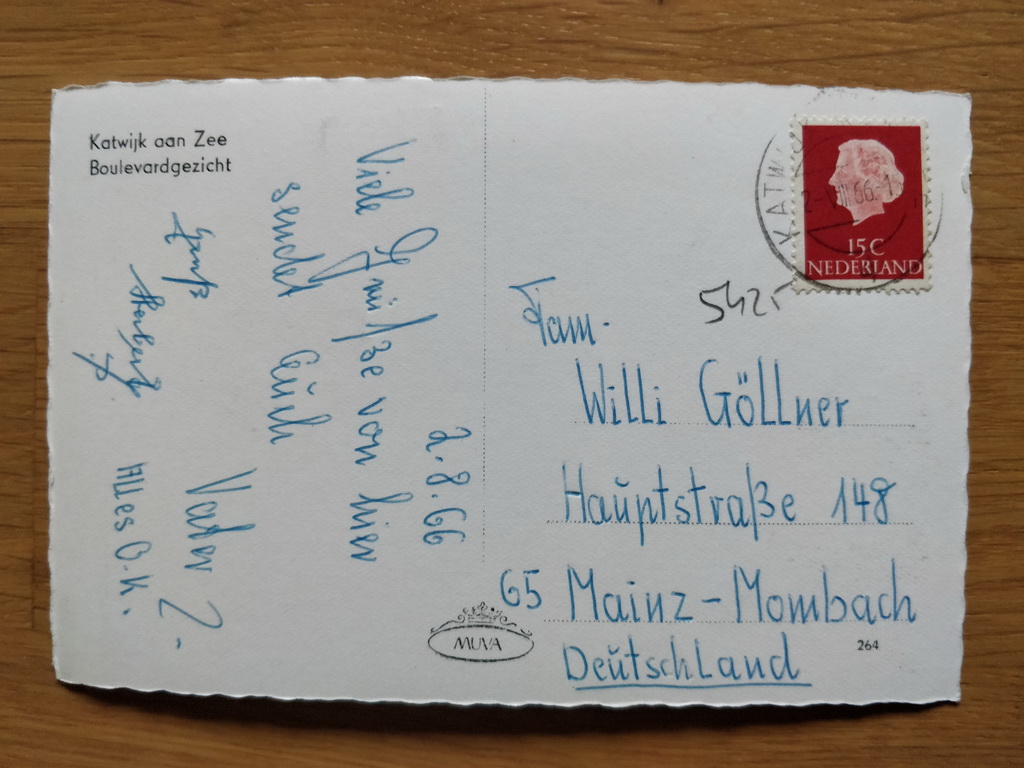 Katwijk aan Zee
Boulevardgezicht
2.8.66
Viele Grüße von hier
sendet Euch
Vater
Gruß
Herbert
Alles O.K.
KATW
2-VIII 66.-1
15 C
NEDERLAND
5425
Fam.
Willi Göllner
Hauptstraße 148
65 Mainz-Mombach
Deutschland
MUVA
264